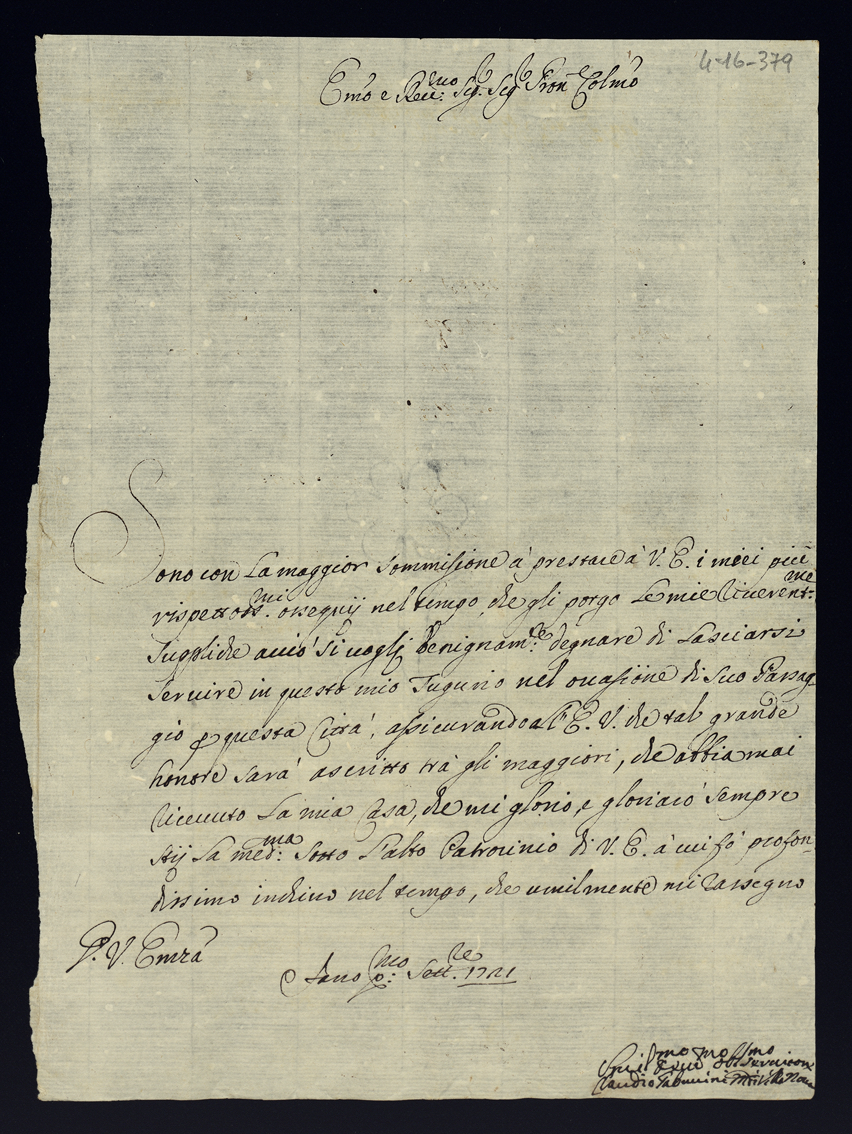 4-16-379
Emo e Reu:mo Sig.r Sig.r Pron e Colmo
Sono con La maggior sommissione à prestare à V. E. i miei più
rispettos:mi ossequij nel tempo, che gli porgo Le mie riuerent:me
suppliche acciò si uoglj benignam:te degnare di Lasciarsi
seruire in questo mio Tugurio nel ocasione di suo Passag
gio p questa Città, assicurando all'E. V. che tal grande
honore sarà ascritto trà gli maggiori, che abbia mai
riceuuto La mia Casa, che mi glorio, e gloriarò sempre
stij La med:ma sotto l'alto Patrocinio di V. E. à cui fò profon-
dissimo inchino nel tempo, che umilmente mi rassegno
D. V. Emza
Fano p:mo Sett:re 1721
Claudio